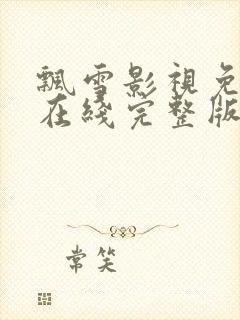 飄雪影視免
在綫完整版
常笑